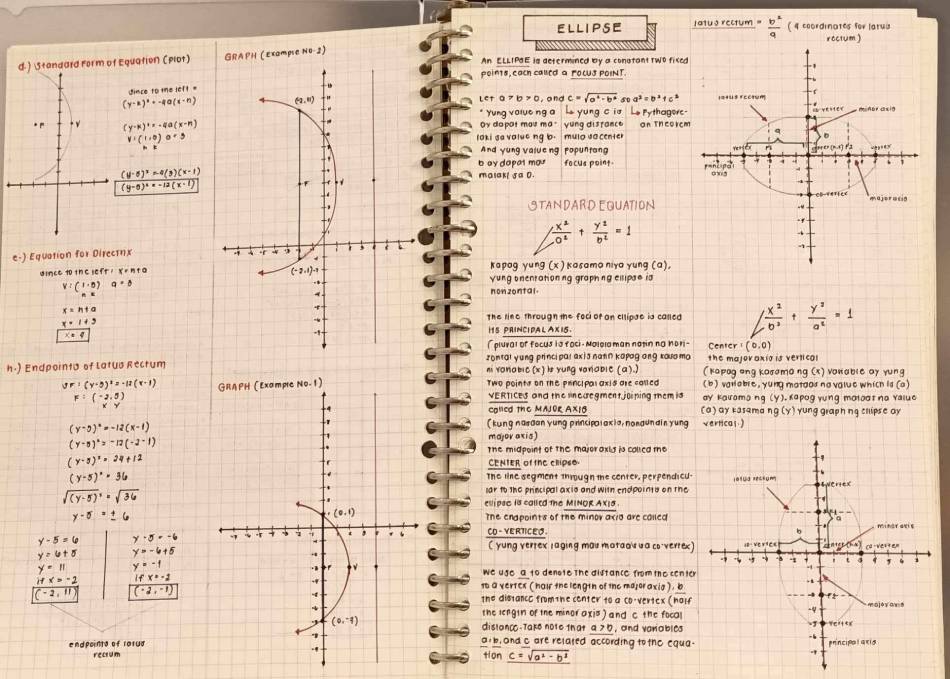 d.) Standard Form of Equation (Plot)
since to the left =
(y-k)² = -4a(x-h)
(y-k)² = -4a(x-h)
V: (1,5) a = 3
h k
(y-5)² = -4(3)(x-1)
(y-5)² = -12(x-1)
F V
e.) Equation for Directrix
since to the left: x = h+a
V: (1,5) a = 3
h k
x = h+a
x = 1+3
x = 4
h.) Endpoints of Latus Rectum
SF: (y-5)² = -12(x-1)
F: (-2,5)
x y
(y-5)² = -12(x-1)
(y-5)² = -12(-2-1)
(y-5)² = 24+12
(y-5)² = 36
√(y-5)² = √36
y-5 = ± 6
y-5 = 6
y = 6+5
y = 11
if x = -2
(-2, 11)
y-5 = -6
y = -6+5
y = -1
if x = -2
(-2, -1)
endpoints of latus
rectum
GRAPH (Example No. 2)
(-2, 11)
F V
(-2,-1)
GRAPH (Example No. 1)
F V
ELLIPSE
An ELLIPSE is determined by a constant two fixed
points, each called a FOCUS POINT.
Let a > b > 0, and c = √a²-b² so a² = b²+c²
Yung value ng a
ay dapat mas ma-
laki sa value ng b.
And yung value ng
b ay dapat mas
malaki sa 0.
yung c is
yung distance
mula sa center
papuntang
focus point.
Pythagore-
an Theorem
STANDARD EQUATION
x²/a² + y²/b² = 1
Kapag yung (x) kasama niya yung (a),
yung orientation ng graph ng ellipse is
horizontal.
The line through the foci of an ellipse is called
its PRINCIPAL AXIS.
(plural of focus is foci. Malalaman natin na hori-
zontal yung principal axis natin kapag ang kasama
ni variable (x) is yung variable (a).)
Two points on the principal axis are called
VERTICES and the line segment joining them is
called the MAJOR AXIS.
(kung nasaan yung principal axis, nandun din yung
major axis)
The midpoint of the major axis is called the
CENTER of the ellipse.
The line segment through the center, perpendicu-
lar to the principal axis and with endpoints on the
ellipse is called the MINOR AXIS.
The endpoints of the minor axis are called
CO-VERTICES.
(yung vertex laging mas mataas sa co-vertex)
We use a to denote the distance from the center
to a vertex (half the length of the major axis), b
the distance from the center to a co-vertex (half
the length of the minor axis) and c the focal
distance. Take note that a > b, and variables
a, b, and c are related according to the equa-
tion c = √a²-b²
latus rectum = b²/a (4 coordinates for latus
rectum)
latus rectum
co-vertex
minor axis
a
b
vertex F1 center (h,k) F2 vertex
principal
axis
co-vertex
major axis
x²/b² + y²/a² = 1
Center: (0,0)
the major axis is vertical
(Kapag ang kasama ng (x) variable ay yung
(b) variable, yung mataas na value which is (a)
ay kasama ng (y). Kapag yung mataas na value
(a) ay kasama ng (y) yung graph ng ellipse ay
vertical.)
latus rectum
vertex
a
minor axis
b
co-vertex center (h,k) co-vertex
F2
major axis
vertex
principal axis